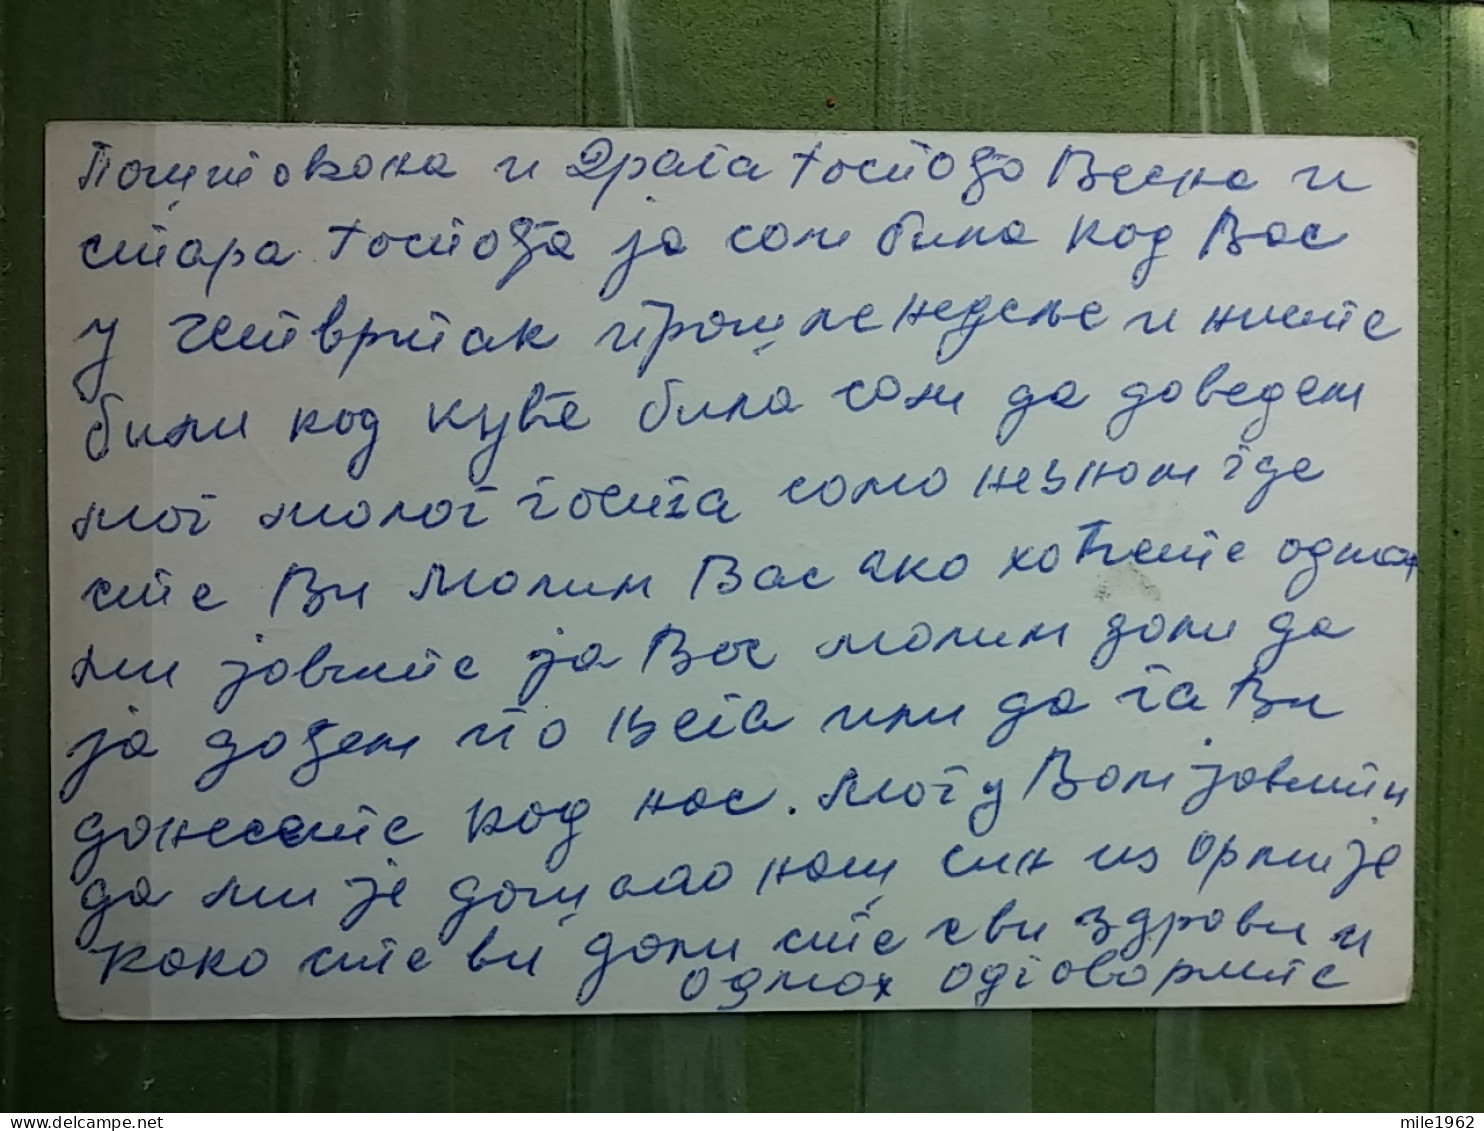 Поштована и Драга Госпођо Весна и
стара Госпођа ја сам била код Вас
у четвртак прошле недеље и нисте
били код куће била сам да доведем
мог малог госта само незнам где
сте Ви Молим Вас ако хоћете одмах
ми јавите ја Вас молим дали да
ја дођем по њега или да га Ви
донесете код нас. Могу Вам јавити
да ми је дошао наш син из армије
како сте ви дали сте сви здрави и
одмах одговорите
mile1962